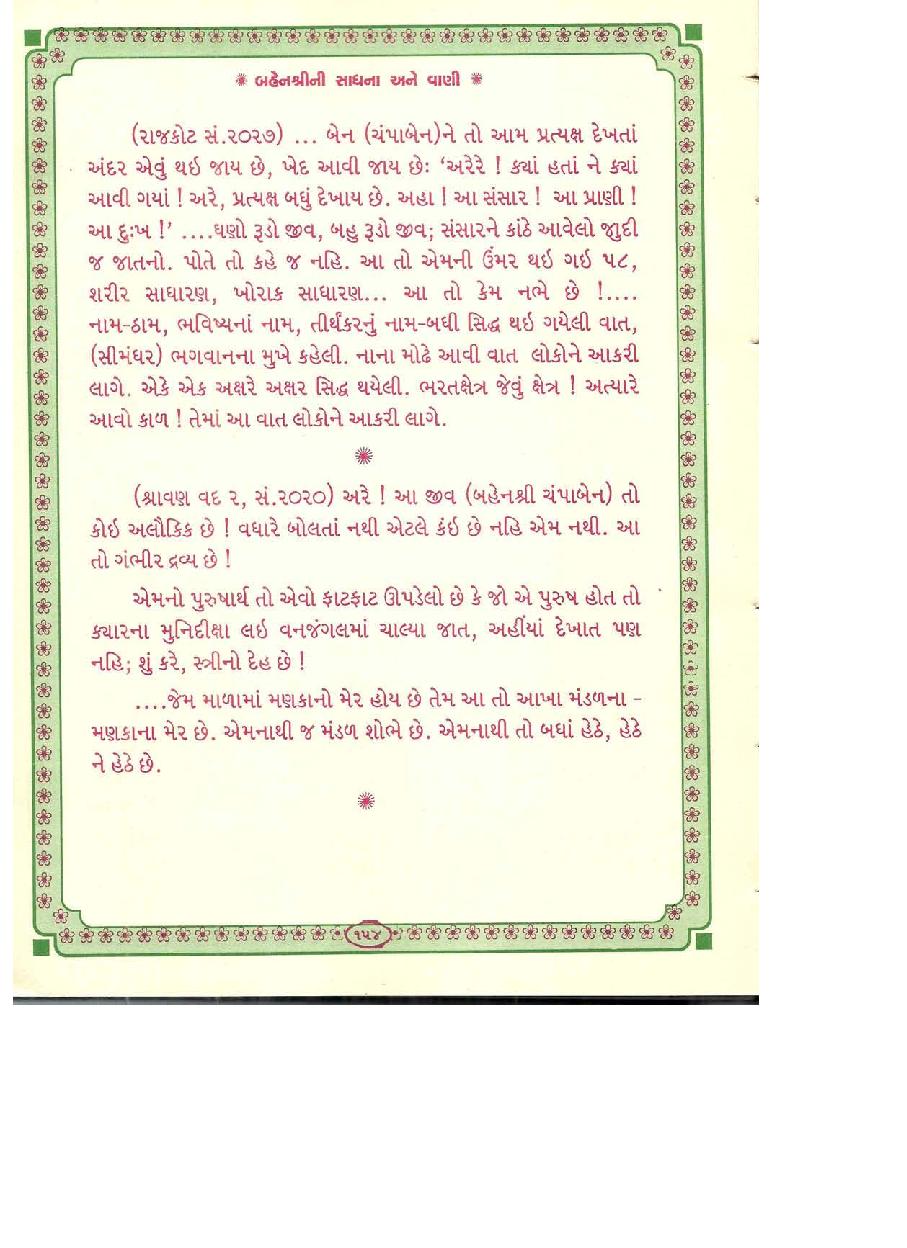 ❋ બહેનશ્રીની સાધના અને વાણી ❋
(રાજકોટ સં.૨૦૨૭) ... બેન (ચંપાબેન)ને તો આમ પ્રત્યક્ષ દેખતાં
અંદર એવું થઇ જાય છે, ખેદ આવી જાય છેઃ ‘અરેરે ! ક્યાં હતાં ને ક્યાં
આવી ગયાં ! અરે, પ્રત્યક્ષ બધું દેખાય છે. અહા ! આ સંસાર ! આ પ્રાણી !
આ દુઃખ !’ ....ઘણો રૂડો જીવ, બહુ રૂડો જીવ; સંસારને કાંઠે આવેલો જુદી
જ જાતનો. પોતે તો કહે જ નહિ. આ તો એમની ઉંમર થઇ ગઇ ૫૮,
શરીર સાધારણ, ખોરાક સાધારણ... આ તો કેમ નભે છે !....
નામ-ઠામ, ભવિષ્યનાં નામ, તીર્થંકરનું નામ-બધી સિદ્ધ થઇ ગયેલી વાત,
(સીમંધર) ભગવાનના મુખે કહેલી. નાના મોઢે આવી વાત લોકોને આકરી
લાગે. એકે એક અક્ષરે અક્ષર સિદ્ધ થયેલી. ભરતક્ષેત્ર જેવું ક્ષેત્ર ! અત્યારે
આવો કાળ ! તેમાં આ વાત લોકોને આકરી લાગે.
❋
(શ્રાવણ વદ ૨, સં.૨૦૨૦) અરે ! આ જીવ (બહેનશ્રી ચંપાબેન) તો
કોઇ અલૌકિક છે ! વધારે બોલતાં નથી એટલે કંઇ છે નહિ એમ નથી. આ
તો ગંભીર દ્રવ્ય છે !
એમનો પુરુષાર્થ તો એવો ફાટફાટ ઊપડેલો છે કે જો એ પુરુષ હોત તો
ક્યારના મુનિદીક્ષા લઇ વનજંગલમાં ચાલ્યા જાત, અહીંયાં દેખાત પણ
નહિ; શું કરે, સ્ત્રીનો દેહ છે !
....જેમ માળામાં મણકાનો મેર હોય છે તેમ આ તો આખા મંડળના -
મણકાના મેર છે. એમનાથી જ મંડળ શોભે છે. એમનાથી તો બધાં હેઠે, હેઠે
ને હેઠે છે.
❋
૧૫૪